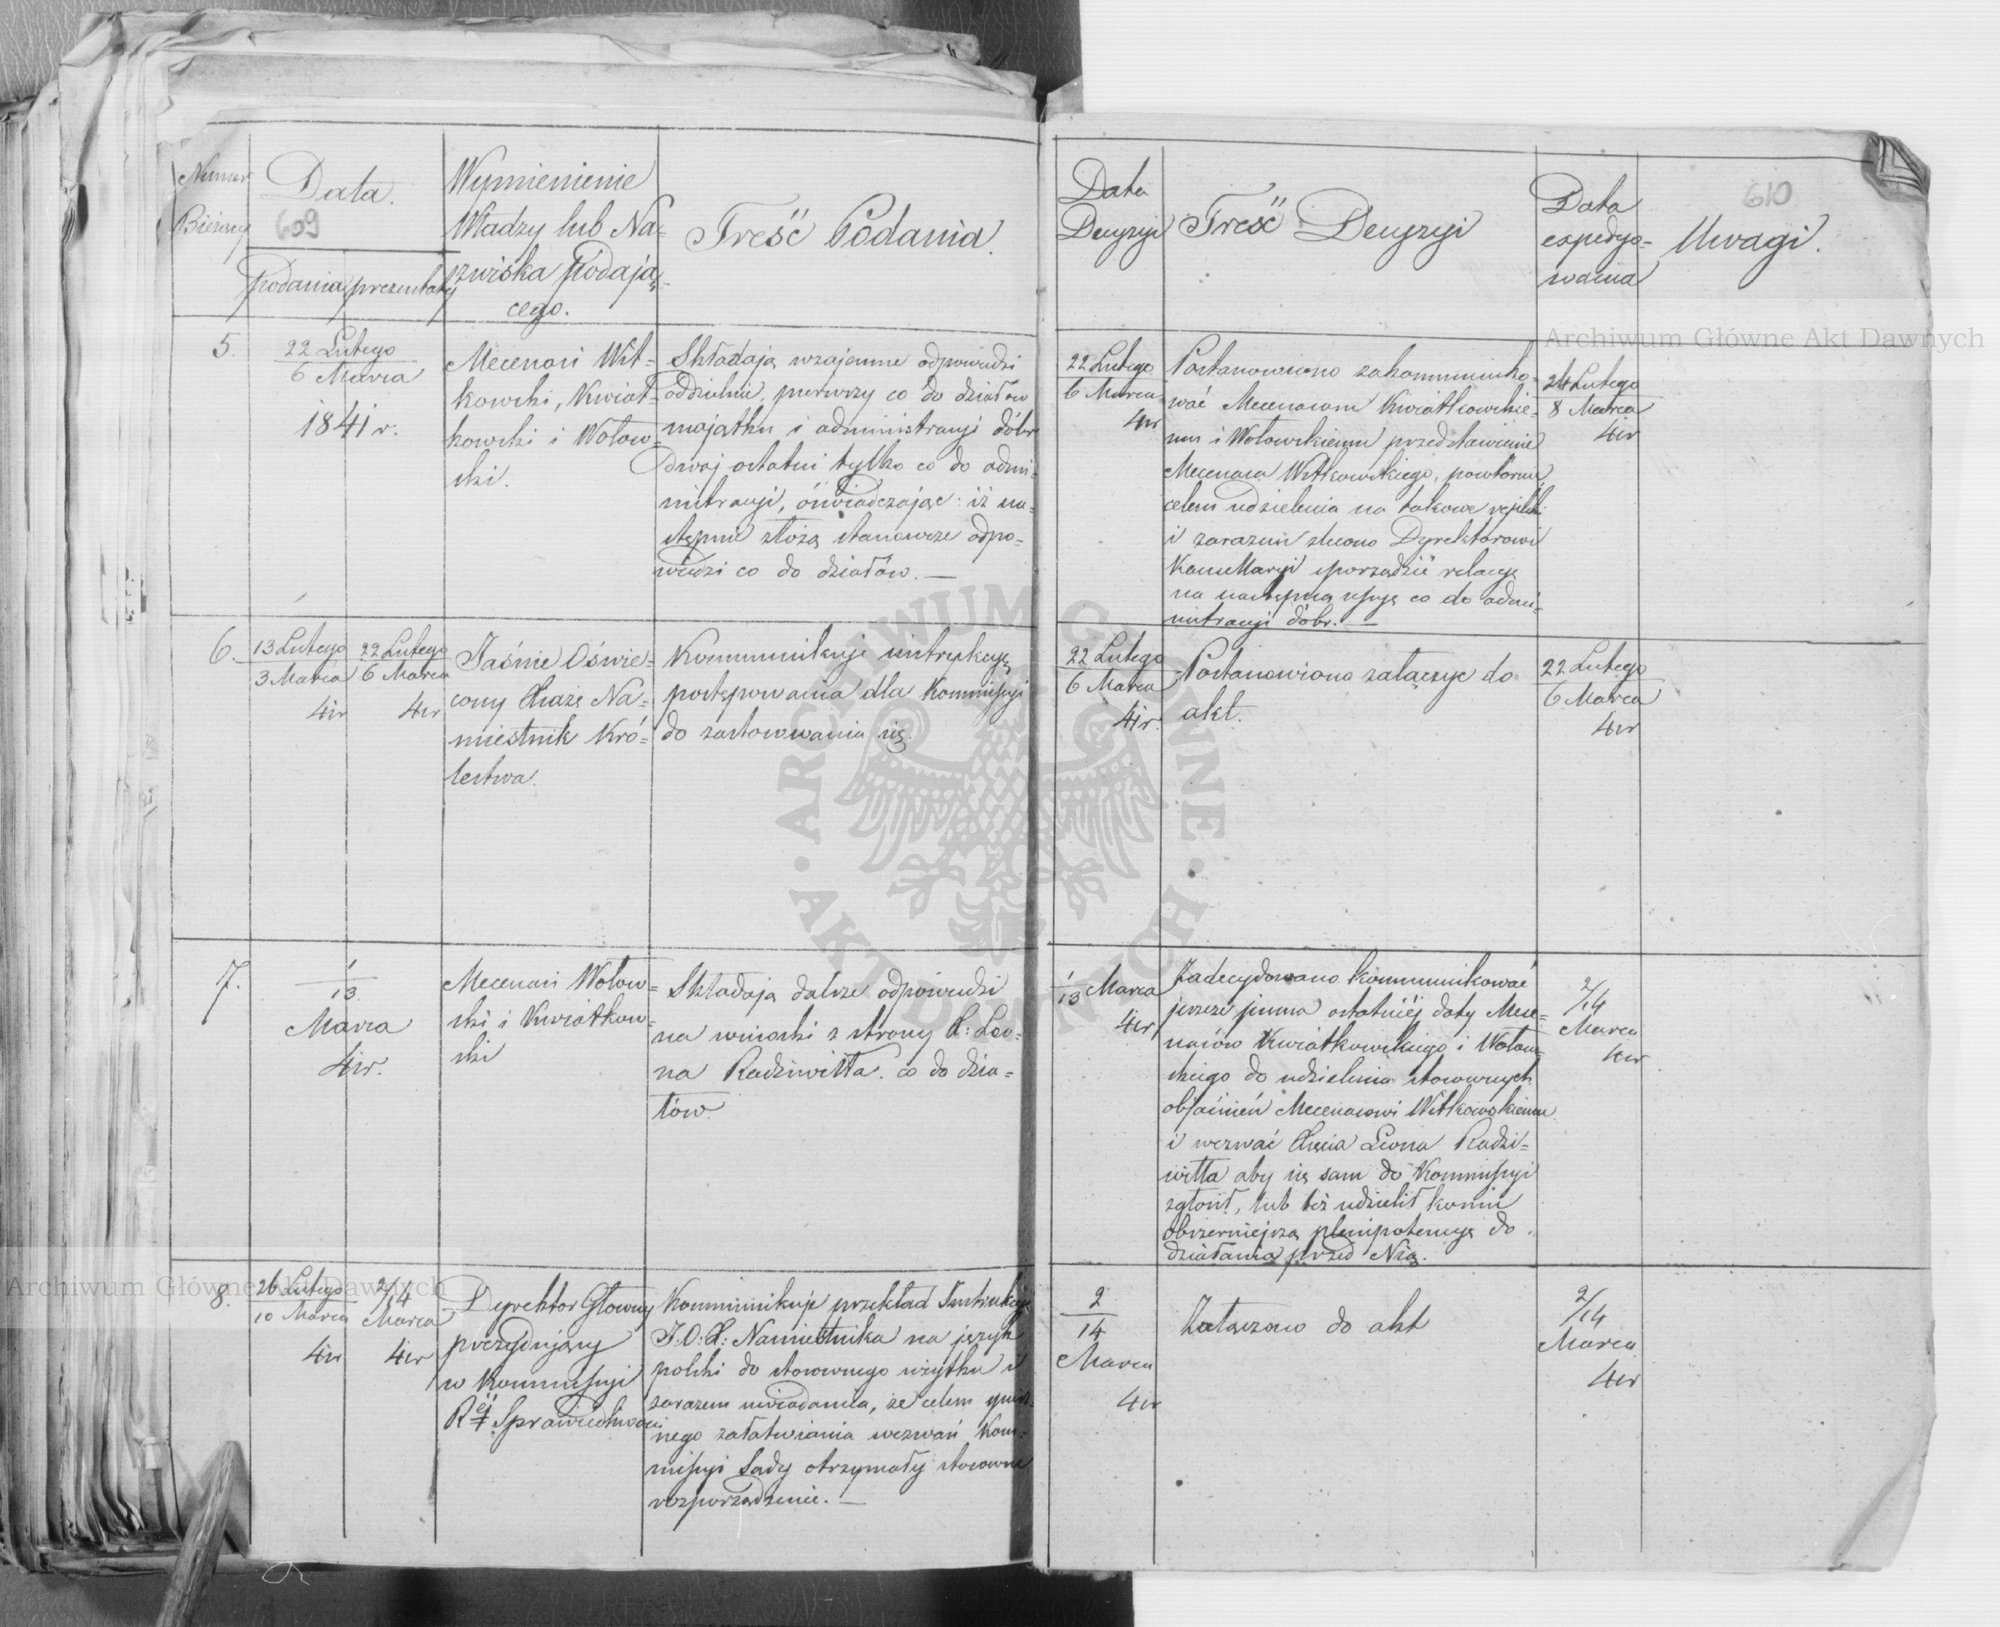 Numer
Bieżący
Data.
609
Podania
prezentaty
Wymienienie
Władzy lub Na-
zwiska Podają-
cego.
Treść Podania.
Data
Decyzyi
Treść Decyzyi
Data
expedyo-
wania
610
Uwagi.
5.
22 Lutego
6 Marca
1841 r.
Mecenasi Wit-
kowski, Kwiat-
kowski i Wołow-
ski.
Składają wzajemne odpowiedzi
oddzielnie, pierwszy co do działów
majątku i administracyi dóbr
Dwaj ostatni tylko co do admi-
nistracyi, oświadczając: iż na-
stępnie złożą stanowcze odpo-
wiedzi co do działów. —
22 Lutego
6 Marca
41r
Postanowiono zakommuniko-
wać Mecenasom Kwiatkowskie-
mu i Wołowskiemu przedstawienie
Mecenasa Witkowskiego, powtórnie,
celem udzielenia na takowe repliki
i zarazem zlecono Dyrektorowi
Kancellaryi sporządzić relacyę
na następną sessyę co do admi-
nistracyi dóbr. —
24 Lutego
8 Marca
41r
6.
13 Lutego
3 Marca
41r
22 Lutego
6 Marca
41r
Jaśnie Oświe-
cony Xiąże Na-
miestnik Kró-
lestwa.
Kommunikuje instrukcyę
postępowania dla Kommissyi
do zastosowania się.
22 Lutego
6 Marca
41r.
Postanowiono załączyć do
akt.
22 Lutego
6 Marca
41r
7.
1
13
Marca
41r.
Mecenasi Wołow-
ski i Kwiatkow-
ski
Składają dalsze odpowiedzi
na wnioski z strony X: Leo-
na Radziwiłła. co do dzia-
łów.
1
13 Marca
41r
Zadecydowano kommunikować
jeszcze pisma ostatniéj daty Mece-
nasów Kwiatkowskiego i Wołow-
skiego do udzielenia stosownych
objaśnień Mecenasowi Witkowskiemu
i wezwać Xięcia Leona Radzi-
wiłła aby się sam do Kommissyi
zgłosił, lub też udzielił komu
obszerniejszą plenipotencyę do
działania przed Nią.
2/14
Marca
41r
8.
26 Lutego
10 Marca
41r
2/14
Marca
41r
Dyrektor Główny
prezydujący
w Kommissyi
Réj Sprawiedliwości
Kommunikuje przekład Instrukcyi
J.O.X: Namiestnika na język
polski do stosownego użytku i
zarazem uwiadamia, że celem spiesz-
nego załatwiania wezwań Kom-
missyi Sądy otrzymały stosowne
rozporządzenie. —
2
14
Marca
41r
Załączono do akt
2/14
Marca
41r
Archiwum Główne Akt Dawnych
Archiwum Główne Akt Dawnych
ARCHIWUM GŁÓWNE AKT DAWNYCH